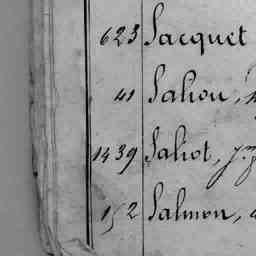 623 Sacquet
41 Saliou,
1439 Saliot, J.
152 Salmon,